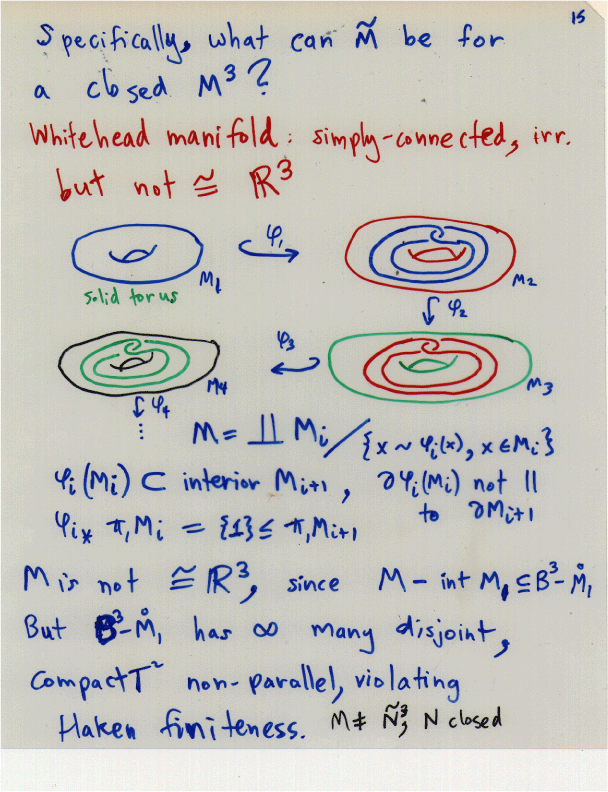 15
Specifically, what can M̃ be for
a closed M³?
Whitehead manifold: simply-connected, irr.
but not ≅ ℝ³
φ₁
M₁
solid torus
M₂
φ₂
φ₃
M₄
M₃
φ₄
⋮
M = ∐ Mᵢ / {x ~ φᵢ(x), x ∈ Mᵢ}
φᵢ(Mᵢ) ⊂ interior Mᵢ₊₁, ∂φᵢ(Mᵢ) not ||
to ∂Mᵢ₊₁
φᵢ* π₁Mᵢ = {1} ≤ π₁Mᵢ₊₁
M is not ≅ ℝ³, since M - int M₁ ⊆ B³ - M̊₁
But B³-M̊₁ has ∞ many disjoint,
compact T² non-parallel, violating
Haken finiteness. M ≠ Ñ³, N closed